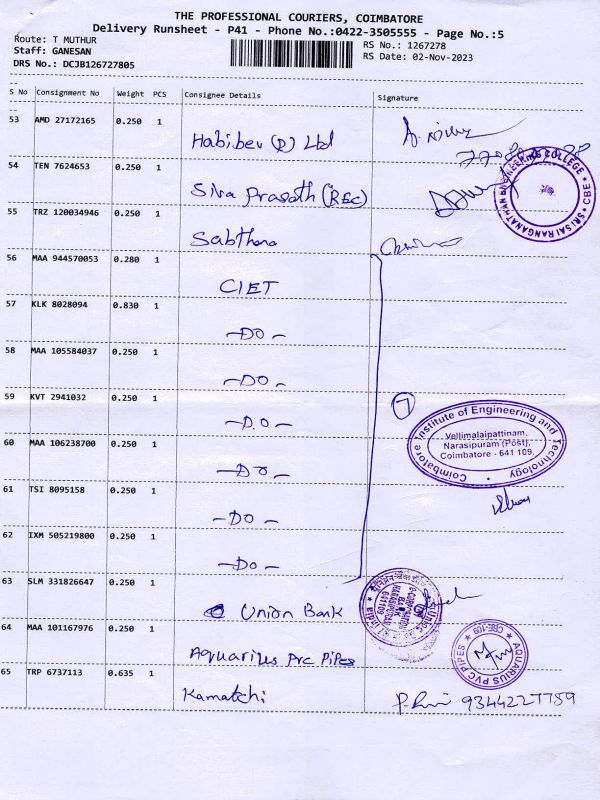 THE PROFESSIONAL COURIERS, COIMBATORE
Delivery Runsheet - P41 - Phone No.:0422-3505555 - Page No.:5
Route: T MUTHUR
RS No.: 1267278
Staff: GANESAN
RS Date: 02-Nov-2023
DRS No.: DCJB126727805
S No Consignment No Weight PCS Consignee Details Signature
53 AMD 27172165 0.250 1 Habibev (P) Ltd
54 TEN 7624653 0.250 1 Siva Prasath (REC)
SRI SAI RANGANATHAN ENGINEERING COLLEGE ★ CBE ★
55 TRZ 120034946 0.250 1 Sabthana
56 MAA 944570053 0.280 1 CIET
57 KLK 8028094 0.830 1 -DO-
58 MAA 105584037 0.250 1 -DO-
59 KVT 2941032 0.250 1 -DO-
7
Coimbatore Institute of Engineering and Technology
Vellimalaipattinam,
Narasipuram (Post),
Coimbatore - 641 109.
60 MAA 106238700 0.250 1 -DO-
61 TSI 8095158 0.250 1 -DO-
62 IXM 505219800 0.250 1 -DO-
63 SLM 331826647 0.250 1 Union Bank
64 MAA 101167976 0.250 1 Aquarius Pvc Pipes
AQUARIUS PVC PIPES ★ CBE-109 ★
65 TRP 6737113 0.635 1 Kamatchi 9344227759